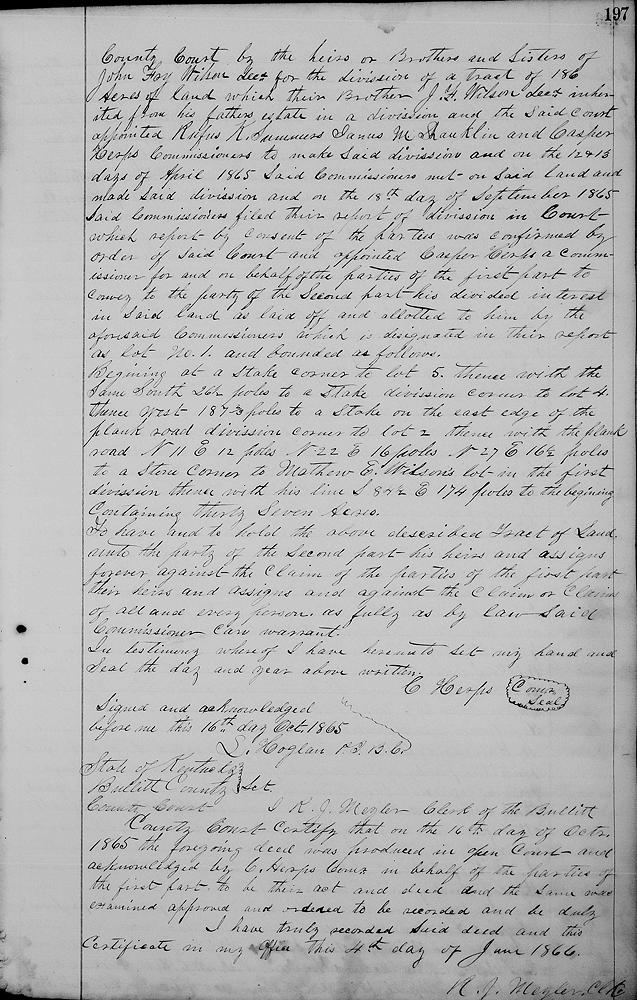 197
County Court by the heirs or Brothers and Sisters of
John Fry Wilson Decd for the division of a tract of 186
Acres of land which their Brother J. F. Wilson Decd inher-
ited from his fathers estate in a division and the Said Court
appointed Rufus K. Summers James M Shanklin and Casper
Herps Commissioners to make Said division and on the 12 & 13
days of April 1865 Said Commissioners met on Said land and
made Said division and on the 18th day of September 1865
Said Commissioners filed their report of division in Court
which report by consent of the parties was confirmed by
order of Said Court and appointed Casper Herps a comm-
issioner for and on behalf of the parties of the first part to
convey to the party of the Second part his divided interest
in Said land as laid off and allotted to him by the
aforesaid Commissioners which is designated in their report
as lot No. 1. and bounded as follows.
Begining at a Stake corner to lot 5. thence with the
Same South 26½ poles to a Stake division corner to lot 4.
thence West 187⅔ poles to a Stake on the east edge of the
plank road division corner to lot 2 thence with the plank
road N 11 E 12 poles N 22 E 16 poles N 27 E 16½ poles
to a Stone corner to Mathew E. Wilson's lot in the first
division thence with his line S 87½ E 174 poles to the begining
Containing thirty Seven Acres.
To have and to hold the above described Tract of Land
unto the party of the Second part his heirs and assigns
forever against the Claim of the parties of the first part
their heirs and assigns and against the Claim or Claims
of all and every person. as fully as by law Said
Commissioner can warrant.
In testimony whereof I have hereunto Set my hand and
Seal the day and year above written
C Herps Comr
Seal
Signed and acknowledged
before me this 16th day Oct. 1865
L. Hoglan P.J. B.C.
State of Kentucky
Bullitt County Sct.
County Court I R. J. Meyler Clerk of the Bullitt
County Court Certify that on the 16th day of Octr.
1865 the foregoing deed was produced in open Court and
acknowledged by C. Herps Comr in behalf of the parties of
the first part to be their act and deed and the Same was
examined approved and ordered to be recorded and be duly
I have truly recorded Said deed and this
Certificate in my office this 4th day of June 1866.
R. J. Meyler, Clk